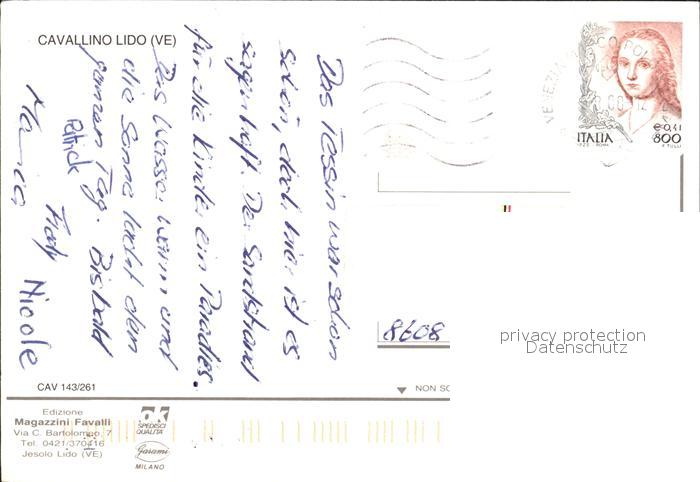 CAVALLINO LIDO (VE)
Das Tessin war schon
schön, doch hier ist es
sagenhaft. Der Sandstrand
für die Kinder ein Paradies.
Das Wasser warm und
die Sonne lacht den
ganzen Tag. Bis bald
Patrick
Nicole
CAV 143/261
Edizione
Magazzini Favalli
Via C. Bartolomeo, 7
Tel. 0421/370416
Jesolo Lido (VE)
OK
SPEDISCI
QUALITÀ
Garami
MILANO
VENEZIA
ITALIA
€ 0,41
800
8608
NON SC
privacy protection
Datenschutz